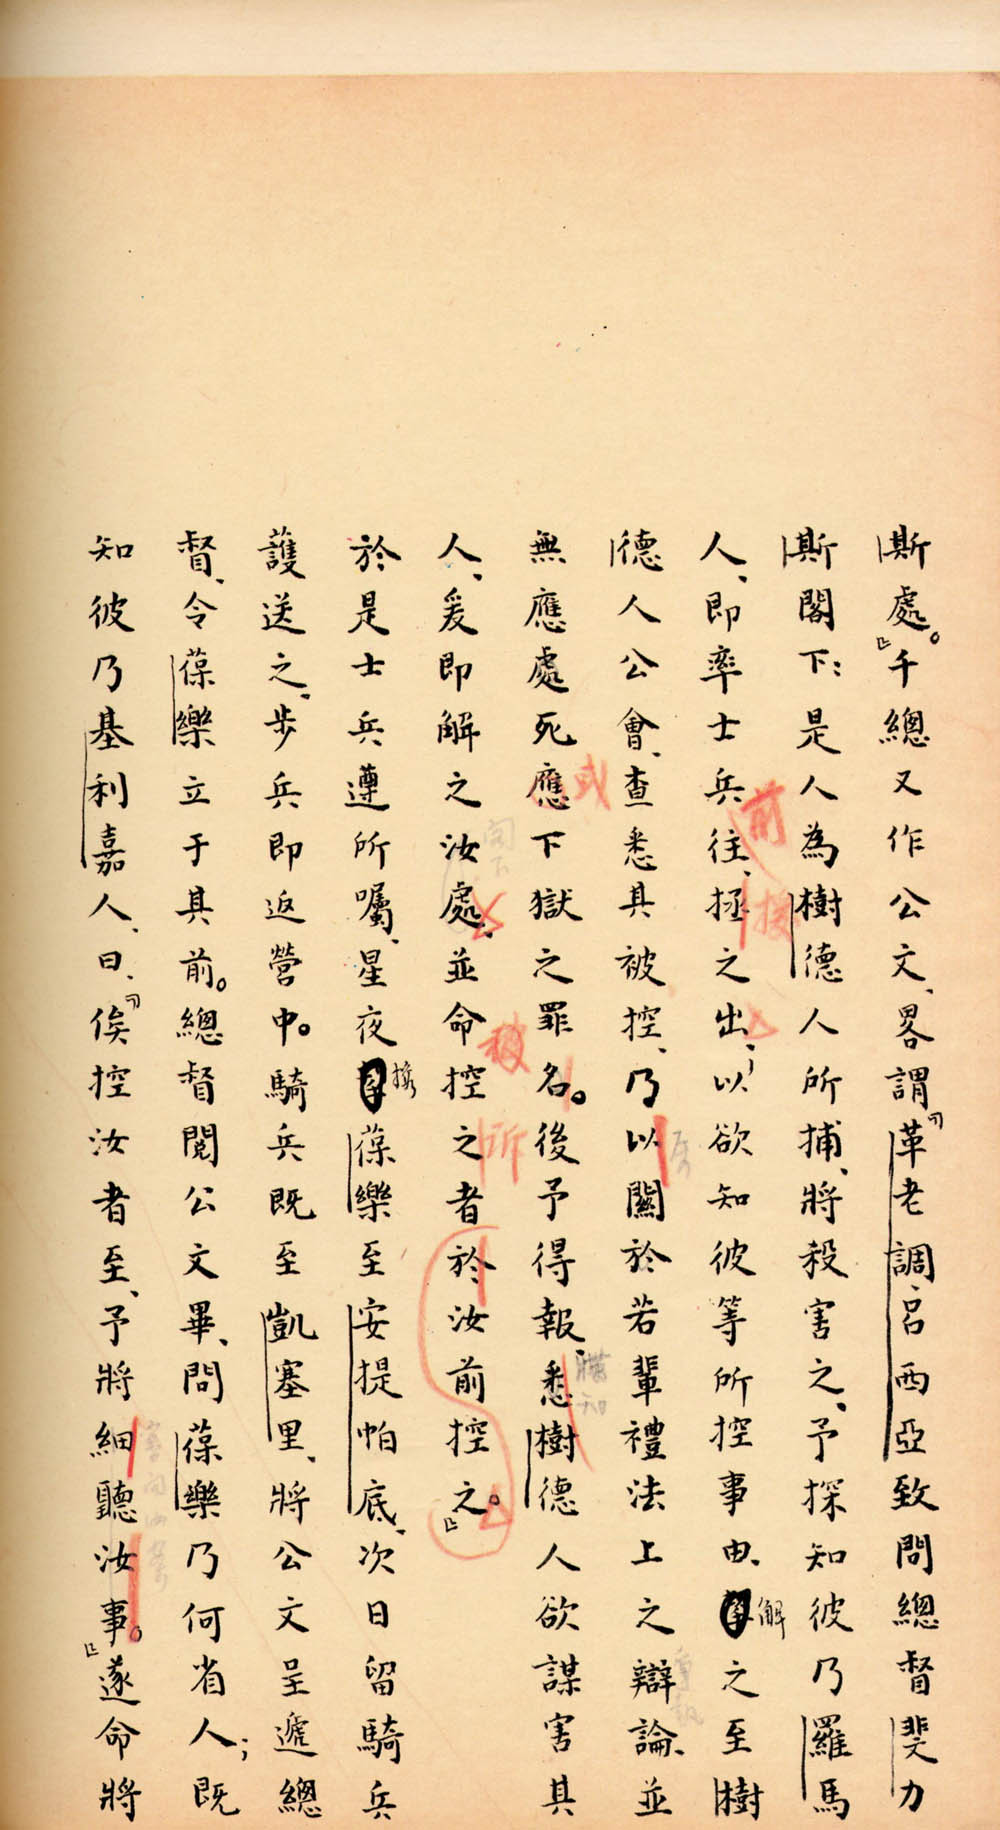 斯處。』千總又作公文、畧謂『革老調呂西亞致問總督斐力
斯閣下：是人為樹德人所捕、將殺害之、予探知彼乃羅馬
人、即率士兵往、拯之出、以欲知彼等所控事由、解之至樹
德人公會、查悉其被控、乃以關於若輩禮法上之辯論、並
無應處死應下獄之罪名。後予得報、悉樹德人欲謀害其
人、爰即解之汝處、並命控之者於汝前控之。』
於是士兵遵所囑、星夜接葆樂至安提帕底、次日留騎兵
護送之、步兵即返營中。騎兵既至凱塞里、將公文呈遞總
督、令葆樂立于其前。總督閱公文畢、問葆樂乃何省人；既
知彼乃基利嘉人、曰、『俟控汝者至、予將細聽汝事。』遂命將
前
接
或
被
所
閣下
臆知